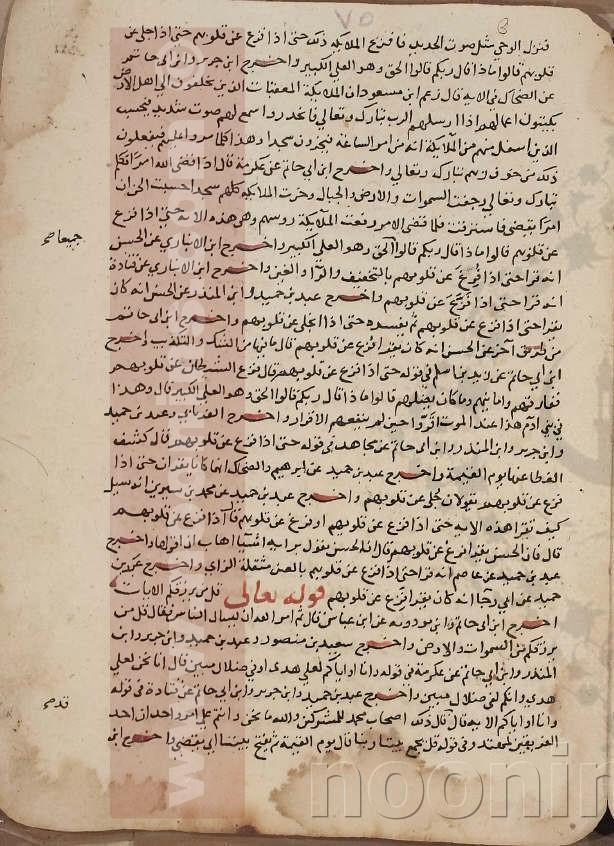 ٧٥
فنزل الوحي مثل صوت الحديد فافزع الملائكة ذلك حتى اذا فزع عن قلوبهم حتى اذا جلى عن
قلوبهم قالوا ماذا قال ربكم قالوا الحق وهو العلي الكبير واخرج ابن جرير وابن ابي حاتم
عن الضحاك في الاية قال زعم ابن مسعود ان الملائكة المعقبات الذين يختلفون الى اهل الارض
يكتبون اعمالهم اذا ارسلهم الرب تبارك وتعالى فانحدروا سمع لهم صوت شديد فيحسب
الذين اسفل منهم من الملائكة انه من امر الساعة فيخرون سجدا وهذا كلما مروا عليهم فيفعلون
ذلك من خوف ربهم تبارك وتعالى واخرج ابن ابي حاتم عن عكرمة قال اذا قضى الله امرا تكلم
تبارك وتعالى رجفت السموات والارض والجبال وخرت الملائكة كلهم سجدا حسبت الجن ان
امرا يقضى فاسترقت فلما قضى الامر رفعت الملائكة روسهم وهي هذه الاية حتى اذا فزع
عن قلوبهم قالوا ماذا قال ربكم قالوا الحق وهو العلي الكبير واخرج ابن الانباري عن الحسن
انه قرا حتى اذا فُزِعَ عن قلوبهم بالتخفيف والرا والعين واخرج ابن الانباري عن قتادة
انه قرا حتى اذا فزع عن قلوبهم واخرج عبد بن حميد وابن المنذر عن الحسن انه كان
يقرا حتى اذا فزع عن قلوبهم ثم يفسره حتى اذا انجلى عن قلوبهم واخرج ابن ابي حاتم
من طريق آخر عن الحسن انه كان يقرا فزع عن قلوبهم قال ما فيها من الشك والتكذيب واخرج
ابن ابي حاتم عن زيد بن اسلم في قوله حتى اذا فزع عن قلوبهم قال فزع الشيطان عن قلوبهم
ففارقهم وامانيهم وما كان يضلهم قالوا ماذا قال ربكم قالوا الحق وهو العلي الكبير قال وهذا
في بني ادم هذا عند الموت اقروا حين لم ينفعهم الاقرار واخرج الفريابي وعبد بن حميد
وابن جرير وابن المنذر وابن ابي حاتم عن مجاهد في قوله حتى اذا فزع عن قلوبهم قال كشف
الغطا عنها يوم القيمة واخرج عبد بن حميد عن ابرهيم والضحاك انهما كانا يقران حتى اذا
فزع عن قلوبهم يقولان جُلى عن قلوبهم واخرج عبد بن حميد عن محمد بن سيرين انه سيل
كيف تقرا هذه الاية حتى اذا فزع عن قلوبهم او فرغ عن قلوبهم قال اذا فزع عن قلوبهم
قال فان الحسن يقرا فرغ عن قلوبهم قال ان الحسن يقول برايه اشيا اهاب ان اقولها واخرج
عبد بن حميد عن عاصم انه قرا حتى اذا فزع عن قلوبهم بالعين مثقلة الزاي واخرج عبد بن
حميد عن ابي رجا انه كان يقرا فزع عن قلوبهم قوله تعالى قل من يرزقكم الايات
اخرج ابن ابي حاتم وابن مردويه عن ابن عباس قال ثم امر الله ان يسال الناس فقال قل من
يرزقكم من السموات والارض واخرج سعيد بن منصور وعبد بن حميد وابن جرير وابن
المنذر وابن ابي حاتم عن عكرمة في قوله وانا او اياكم لعلى هدى او في ضلال مبين قال انا نحن لعلى
هدى وانكم لفي ضلال مبين واخرج عبد بن حميد وابن جرير وابن ابي حاتم عن قتادة في قوله
وانا او اياكم الاية قال قال ذلك اصحاب محمد للمشركين والله ما نحن وانتم على امر واحد ان احد
الفريقين لمهتد وفي قوله قل يجمع بيننا ربنا قال يوم القيمة ثم يفتح بيننا اي يقضي واخرج ابن
جميعا صح
noonin